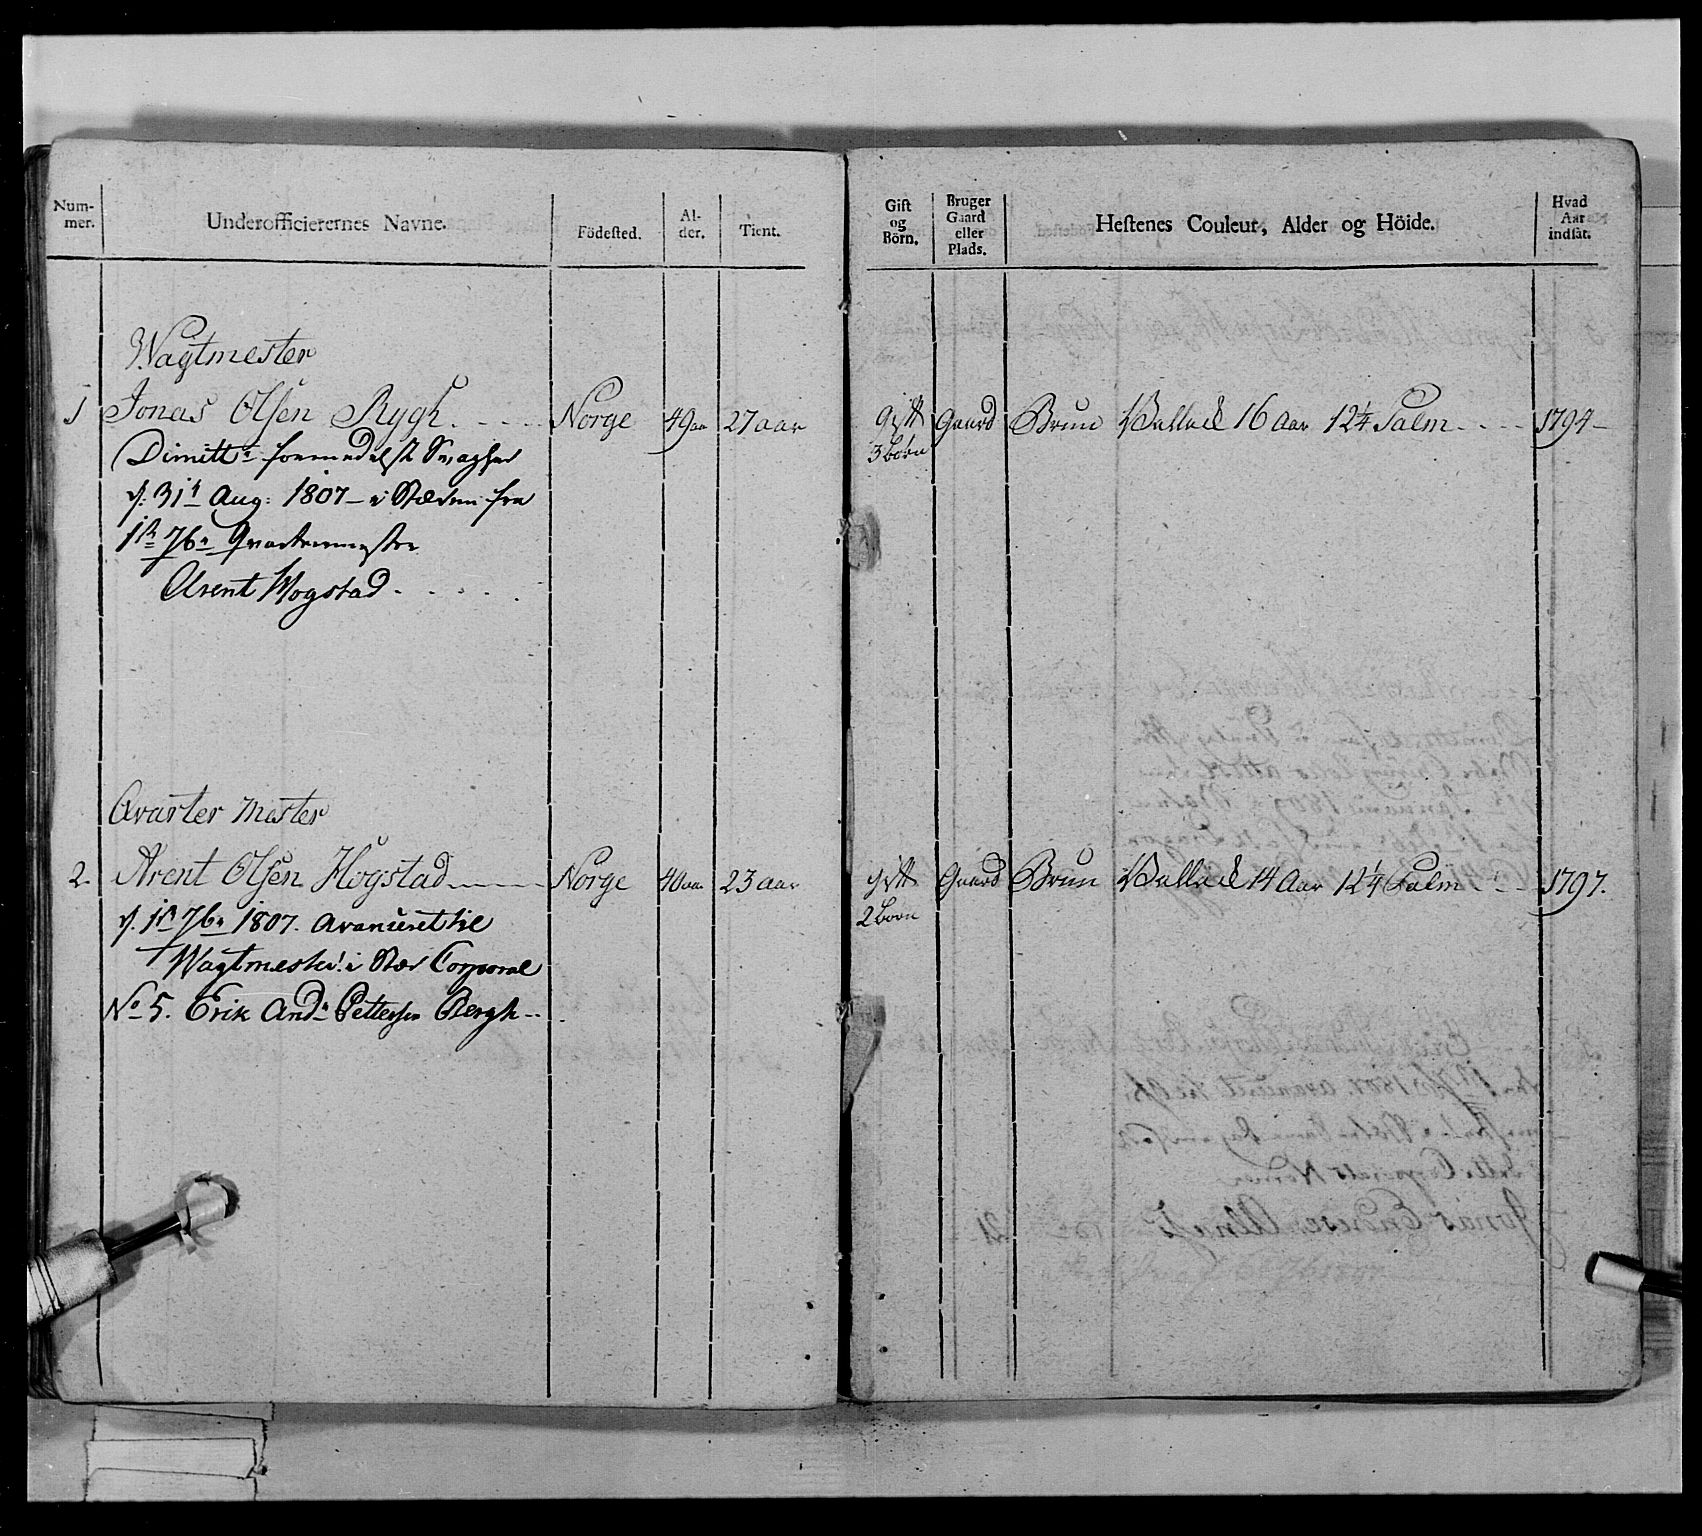 Num-
mer.
Underofficierernes Navne.
Födested.
Al-
der.
Tient.
Gift
og
Börn.
Bruger
Gaard
eller
Plads.
Hestenes Couleur, Alder og Höide.
Hvad
Aar
indsat.
Wagtmester
1 Jonas Olsen Rygh. Norge 49 aar 27 aar Gift Gaard Brun Vallack 16 Aar 12¼ Palm 1794
3 Börn
Dimitt: formedelst Svaghed
d: 31t Aug: 1807 - i Stæden fra
1st 7br Qvarteermester
Arent Hogstad
Qvarter Mester
2. Arent Olsen Hogstad Norge 40 aar 23 aar gift Gaard Brun Vallack 14 Aar 12¼ Palm 1797.
2 Börn
d. 1st 7br 1807. avanceret til
Wagtmester: i Stæd Corporal
No 5. Erik And: Pettersen Bergh